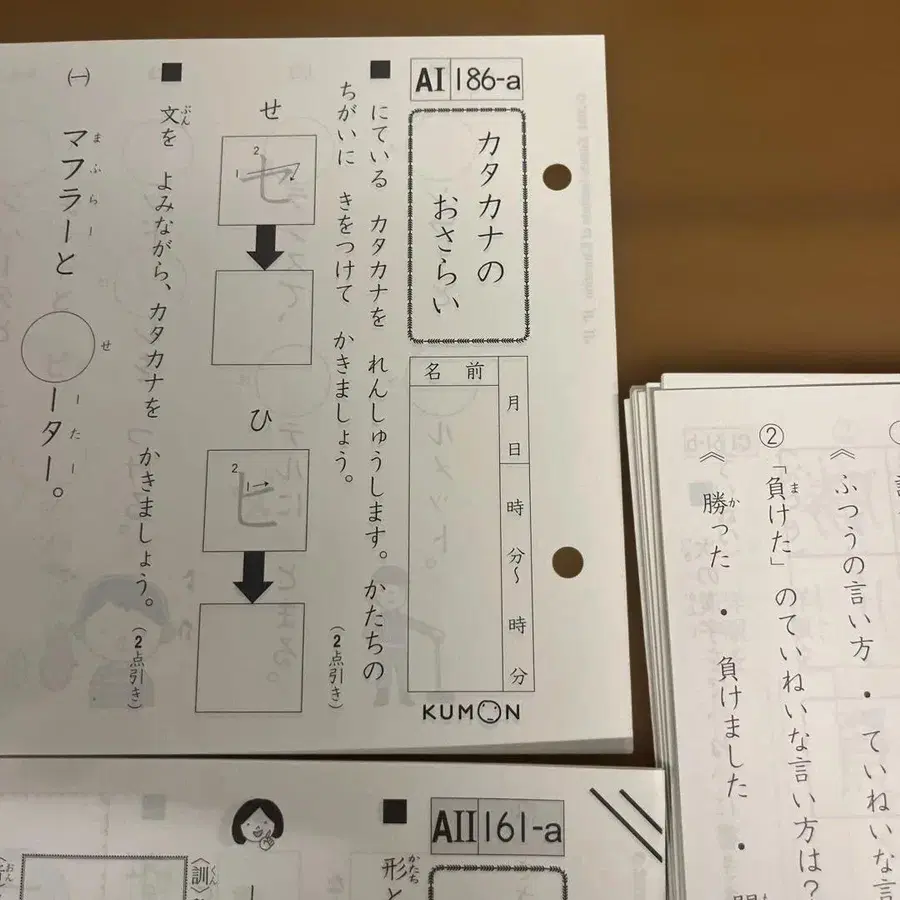 AI 186-a
カタカナの
おさらい
月 日 時 分〜 時 分
名前
KUMON
にている カタカナを れんしゅうします。かたちの
ちがいに きをつけて かきましょう。
(2点引き)
せ
セ
1 2
ひ
ヒ
1 2
文を よみながら、カタカナを かきましょう。
ぶん
(2点引き)
(一)
マフラーと ーター。
まふらー せーたー
AII 161-a
形と
かたち
〈訓〉
くん
おん
《ふつうの言い方・ていねいな言
②「負けた」のていねいな言い方は?
ま
《勝った・負けました・
か